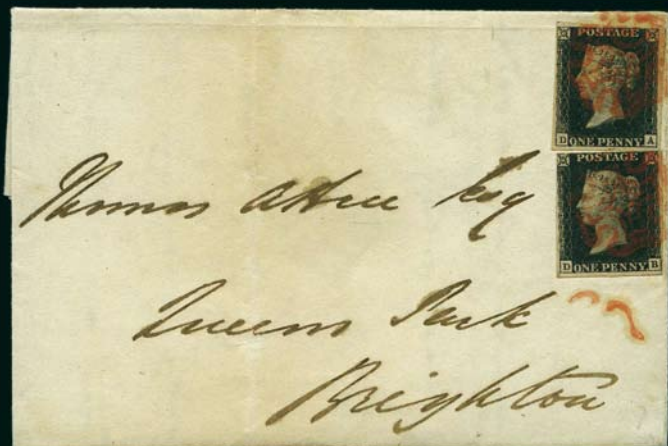 POSTAGE
D A
ONE PENNY
POSTAGE
D B
ONE PENNY
Thomas Attree Esq
Queens Park
Brighton